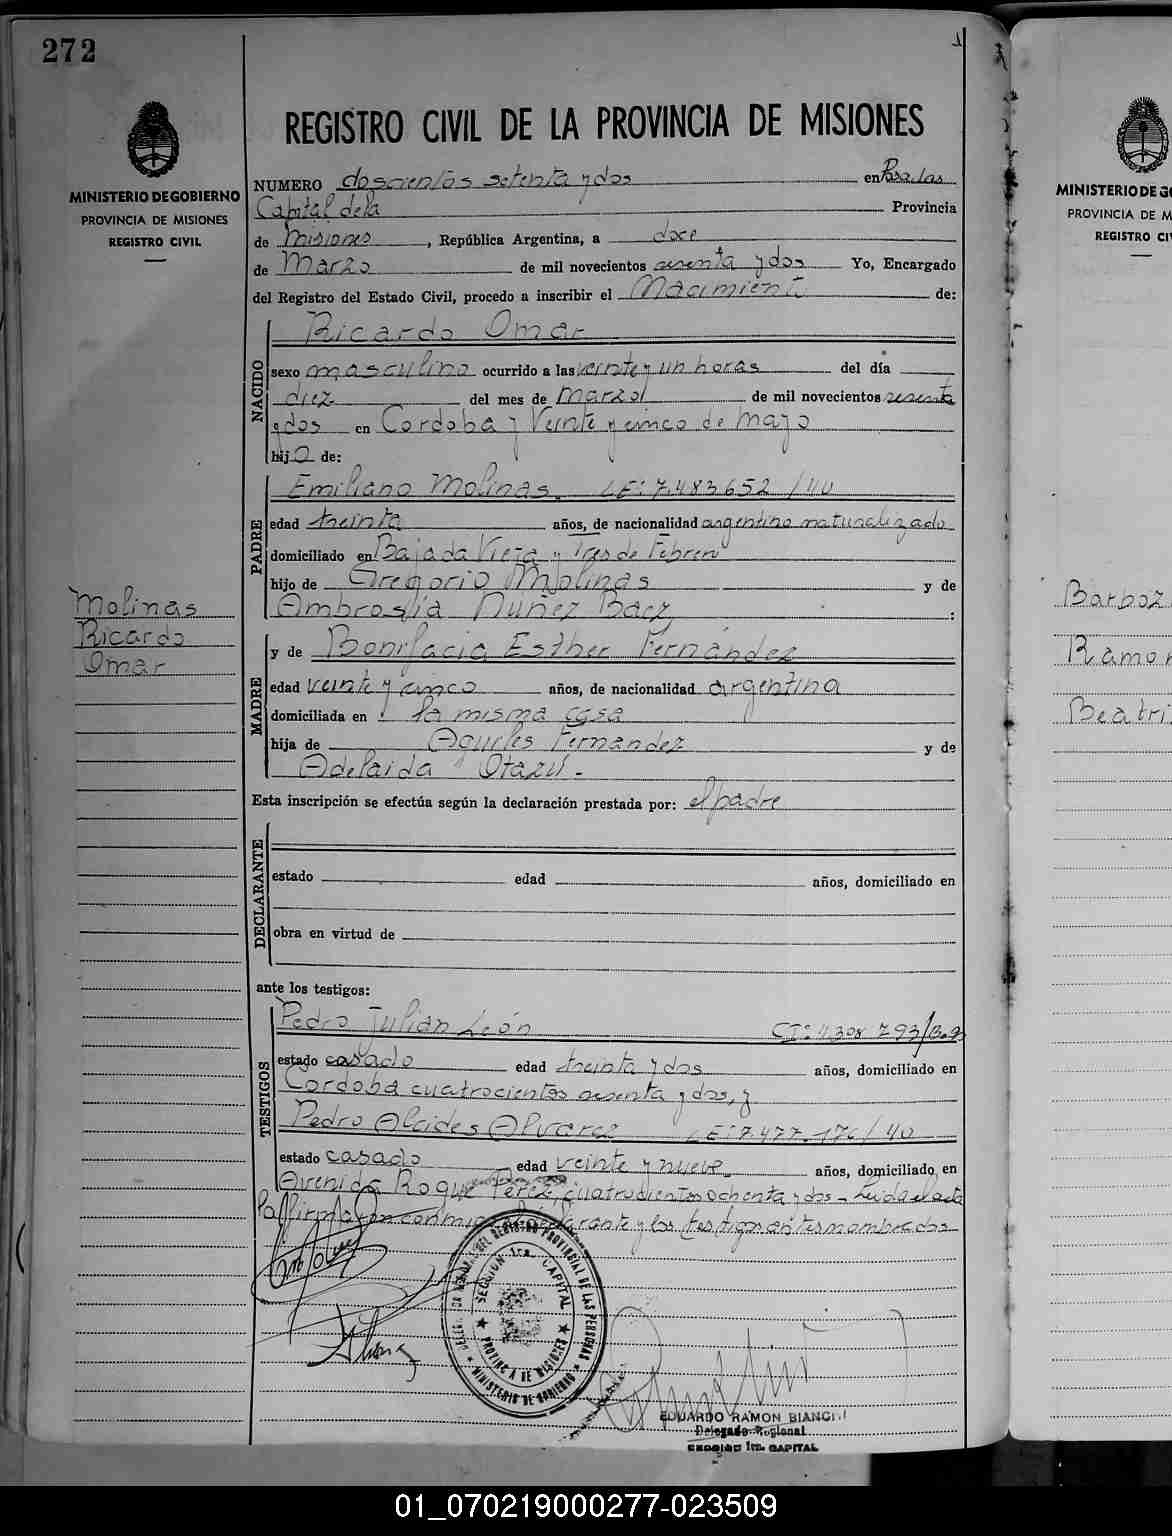 272
1
REGISTRO CIVIL DE LA PROVINCIA DE MISIONES
MINISTERIO DE GOBIERNO
PROVINCIA DE MISIONES
REGISTRO CIVIL
NUMERO doscientos setenta y dos en Posadas
Capital de la Provincia
de Misiones, República Argentina, a doce
de Marzo de mil novecientos sesenta y dos Yo, Encargado
del Registro del Estado Civil, procedo a inscribir el Nacimiento de:
NACIDO
Ricardo Omar
sexo masculino ocurrido a las veinte y un horas del día
diez del mes de Marzo de mil novecientos sesenta
y dos en Cordoba y Veinte y cinco de Mayo
hijo de:
PADRE
Emiliano Molinas. LE: 7.483.652/40
edad treinta años, de nacionalidad argentino naturalizado
domiciliado en Bajada Vieja y Tres de Febrero
hijo de Gregorio Molinas y de
Ambrosia Nuñez Baez :
Molinas
Ricardo
Omar
MADRE
y de Bonifacia Esther Fernández
edad veinte y cinco años, de nacionalidad argentina
domiciliada en la misma casa
hija de Aquiles Fernandez y de
Adelaida Otazú.-
Esta inscripción se efectúa según la declaración prestada por: el padre
DECLARANTE
estado edad años, domiciliado en
obra en virtud de
ante los testigos:
TESTIGOS
Pedro Julián León CI: 4.308.793
estado casado edad treinta y dos años, domiciliado en
Cordoba cuatrocientos sesenta y dos, y
Pedro Alcides Alvarez LE: 7.477.176/40
estado casado edad veinte y nueve años, domiciliado en
Avenida Roque Perez, cuatrocientos ochenta y dos - Leida el acta
la firmaron conmigo el declarante y los testigos antes nombrados
DEL REGISTRO PROVINCIAL DE LAS PERSONAS
SECCION 1ra. CAPITAL
PROVINCIA DE MISIONES
MINISTERIO DE GOBIERNO
EDUARDO RAMON BIANCHI
Delegado Regional
SECCION 1ra. CAPITAL
MINISTERIO DE GO
PROVINCIA DE M
REGISTRO CIV
Barboz
Ramon
Beatri
01_070219000277-023509